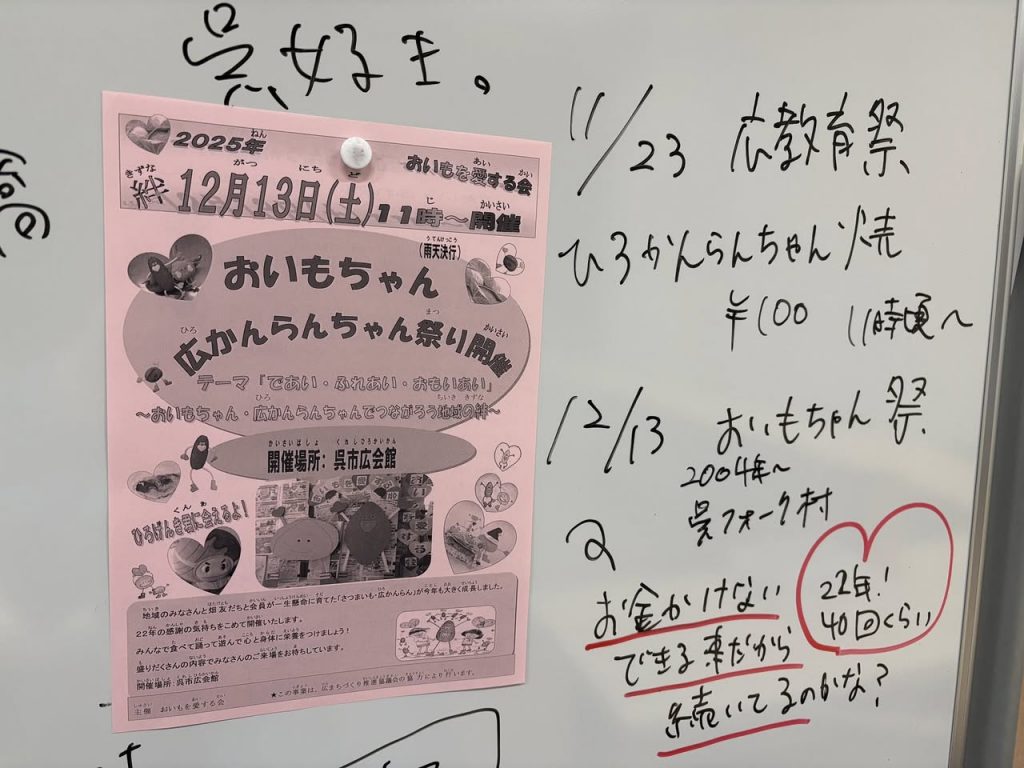 呉好き。
2025年
ねん
おいもを愛する会
あい かい
きずな
絆
がつ にち ど じ かいさい
12月13日(土)11時～開催
うてんけっこう
(雨天決行)
おいもちゃん
ひろ まつ かいさい
広かんらんちゃん祭り開催
テーマ「であい・ふれあい・おもいあい」
ひろ ちいき きずな
～おいもちゃん・広かんらんちゃんでつながろう地域の絆～
かいさいばしょ くれしひろかいかん
開催場所：呉市広会館
くん あ
ひろげんき君に会えるよ！
地域のみなさんと畑友だちと会員が一生懸命に育てた「さつまいも・広かんらん」が今年も大きく成長しました。
22年の感謝の気持ちをこめて開催いたします。
みんなで食べて踊って遊んで心と身体に栄養をつけましょう！
盛りだくさんの内容でみなさんのご来場をお待ちしています。
開催場所：呉市広会館
★この事業は、広まちづくり推進協議会の協力により行います。
主催 おいもを愛する会
11/23 広教育祭
ひろかんらんちゃん焼
¥100 11時頃～
12/13 おいもちゃん祭
2004年～
呉フォーク村
お金かけない
できる事だから
続いてるのかな？
22年！
40回くらい